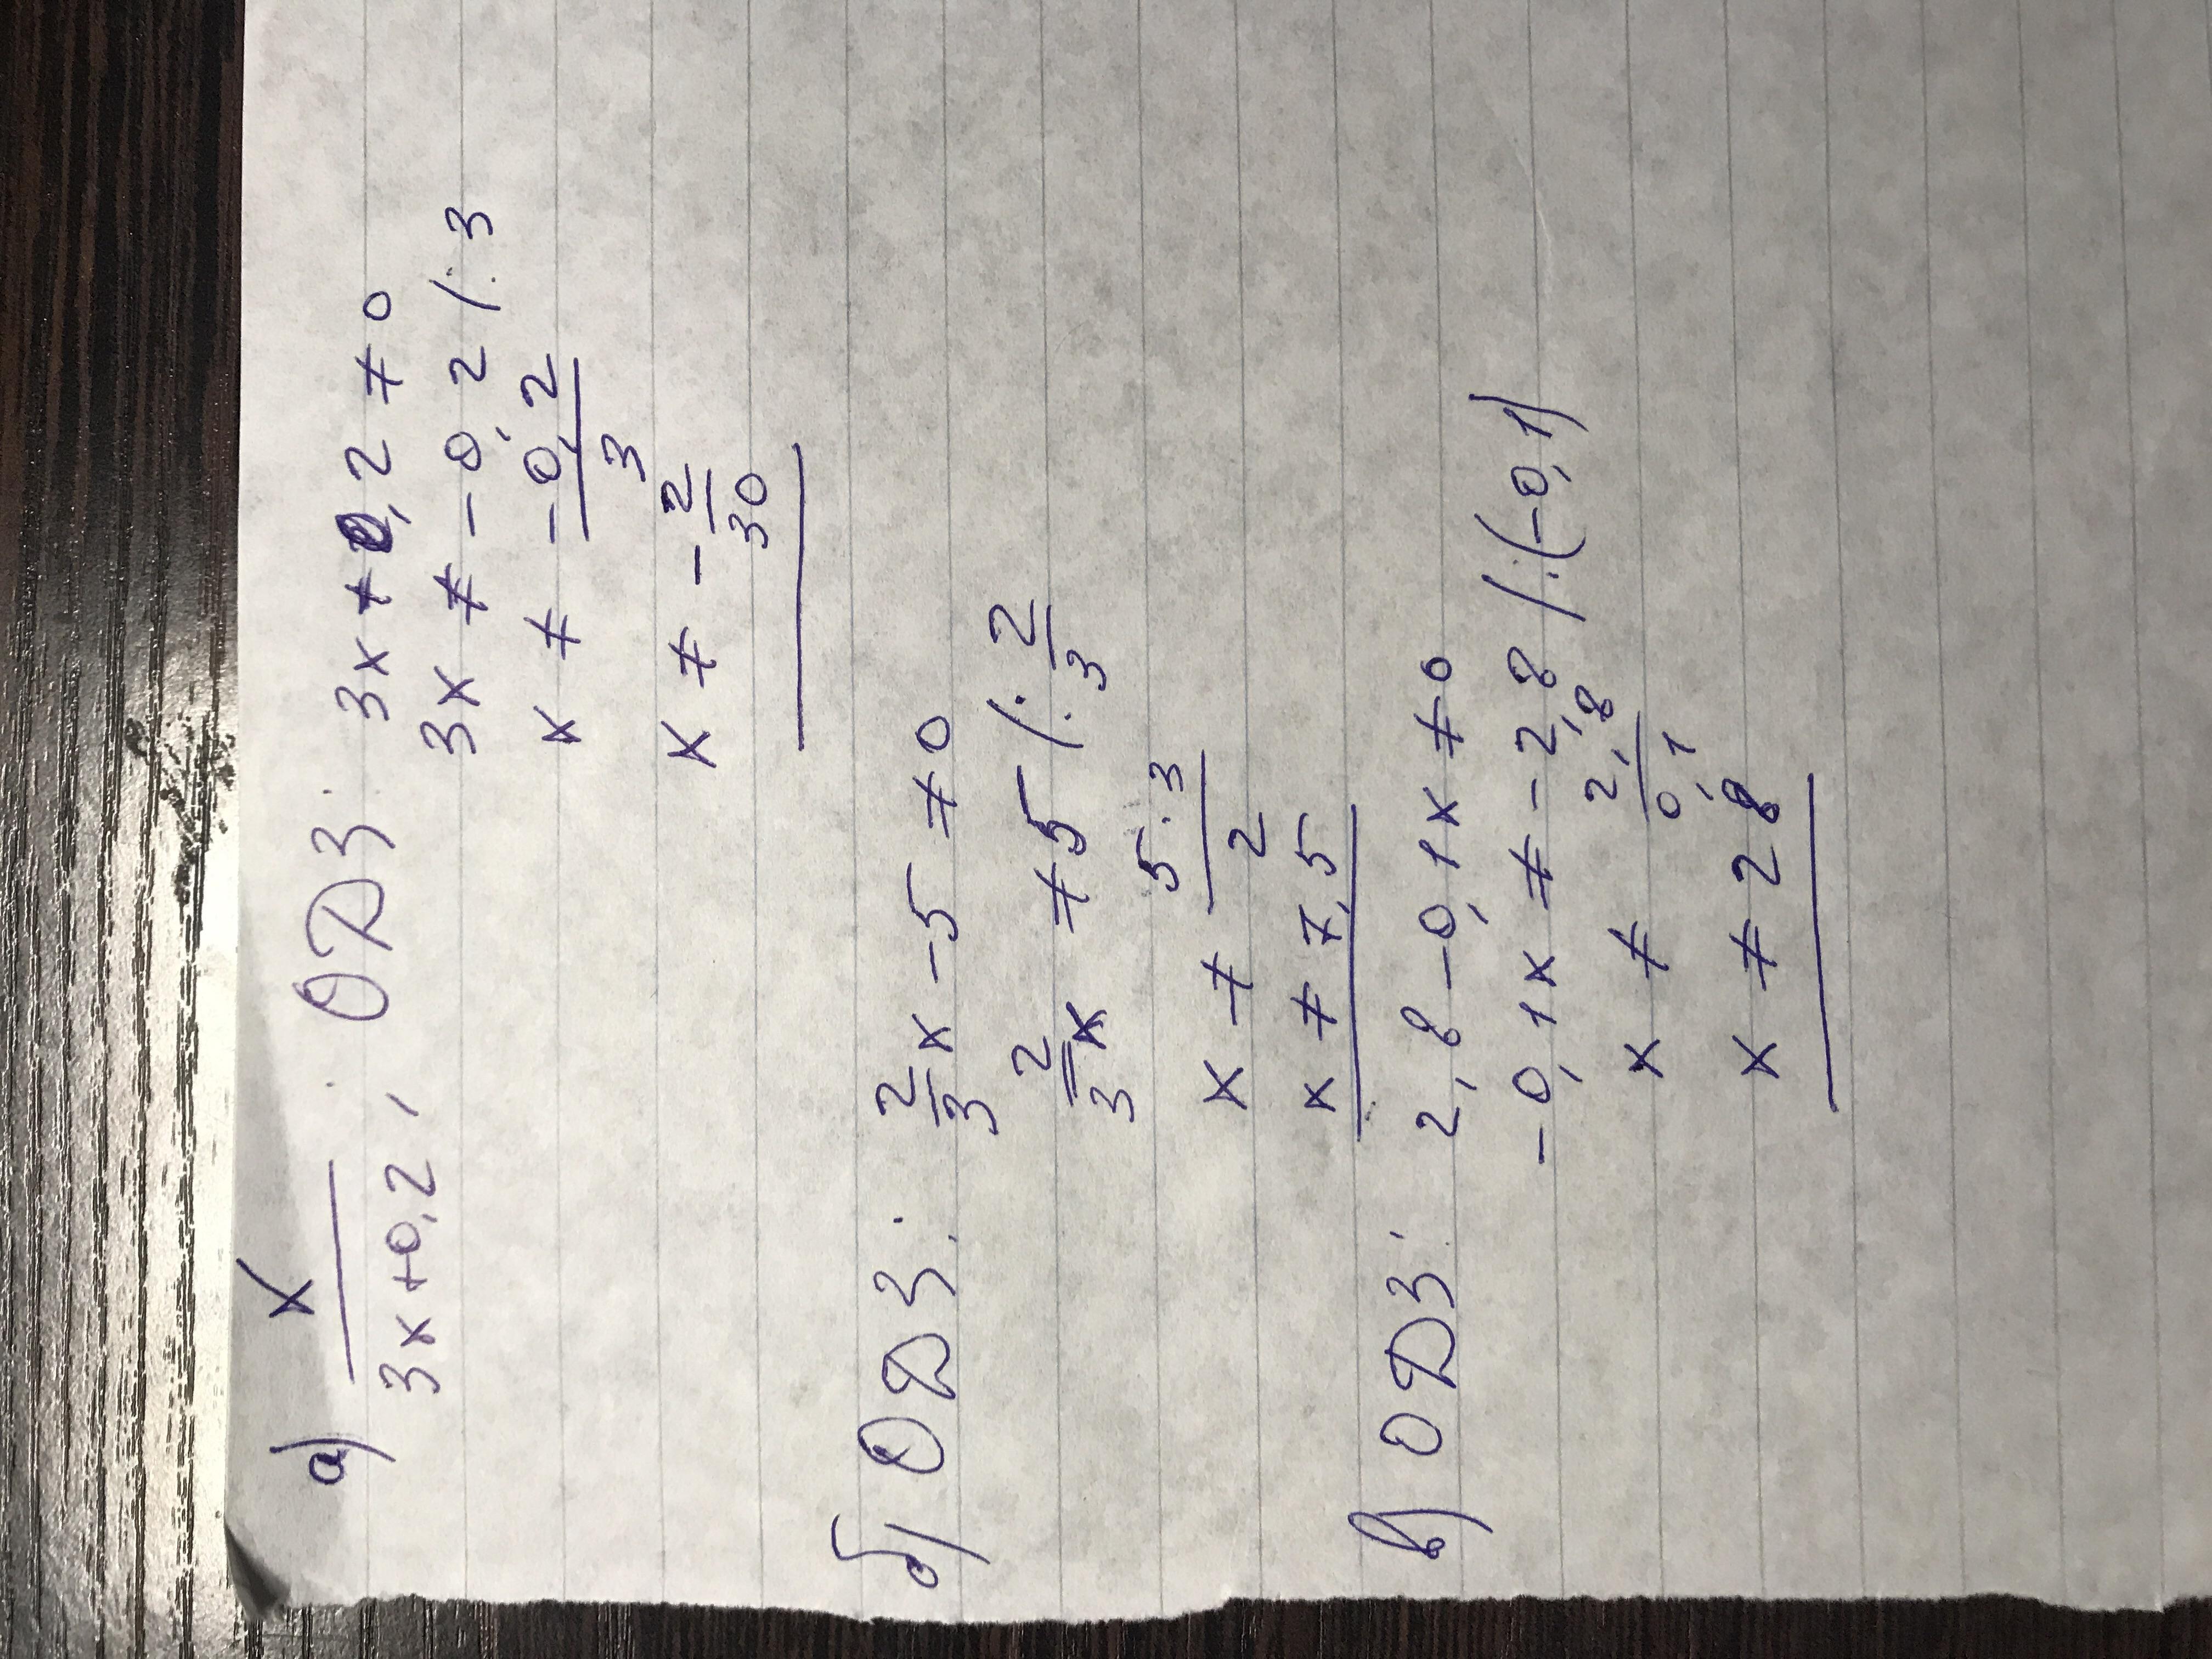 а) x/(3x+0,2) ; ОДЗ: 3x+0,2 ≠ 0
3x ≠ -0,2 /:3
x ≠ -0,2/3
x ≠ -2/30
б) ОДЗ: 2/3 x - 5 ≠ 0
2/3 x ≠ 5 /: 2/3
x ≠ 5·3/2
x ≠ 7,5
в) ОДЗ: 2,8 - 0,1x ≠ 0
-0,1x ≠ -2,8 /:(-0,1)
x ≠ 2,8/0,1
x ≠ 28